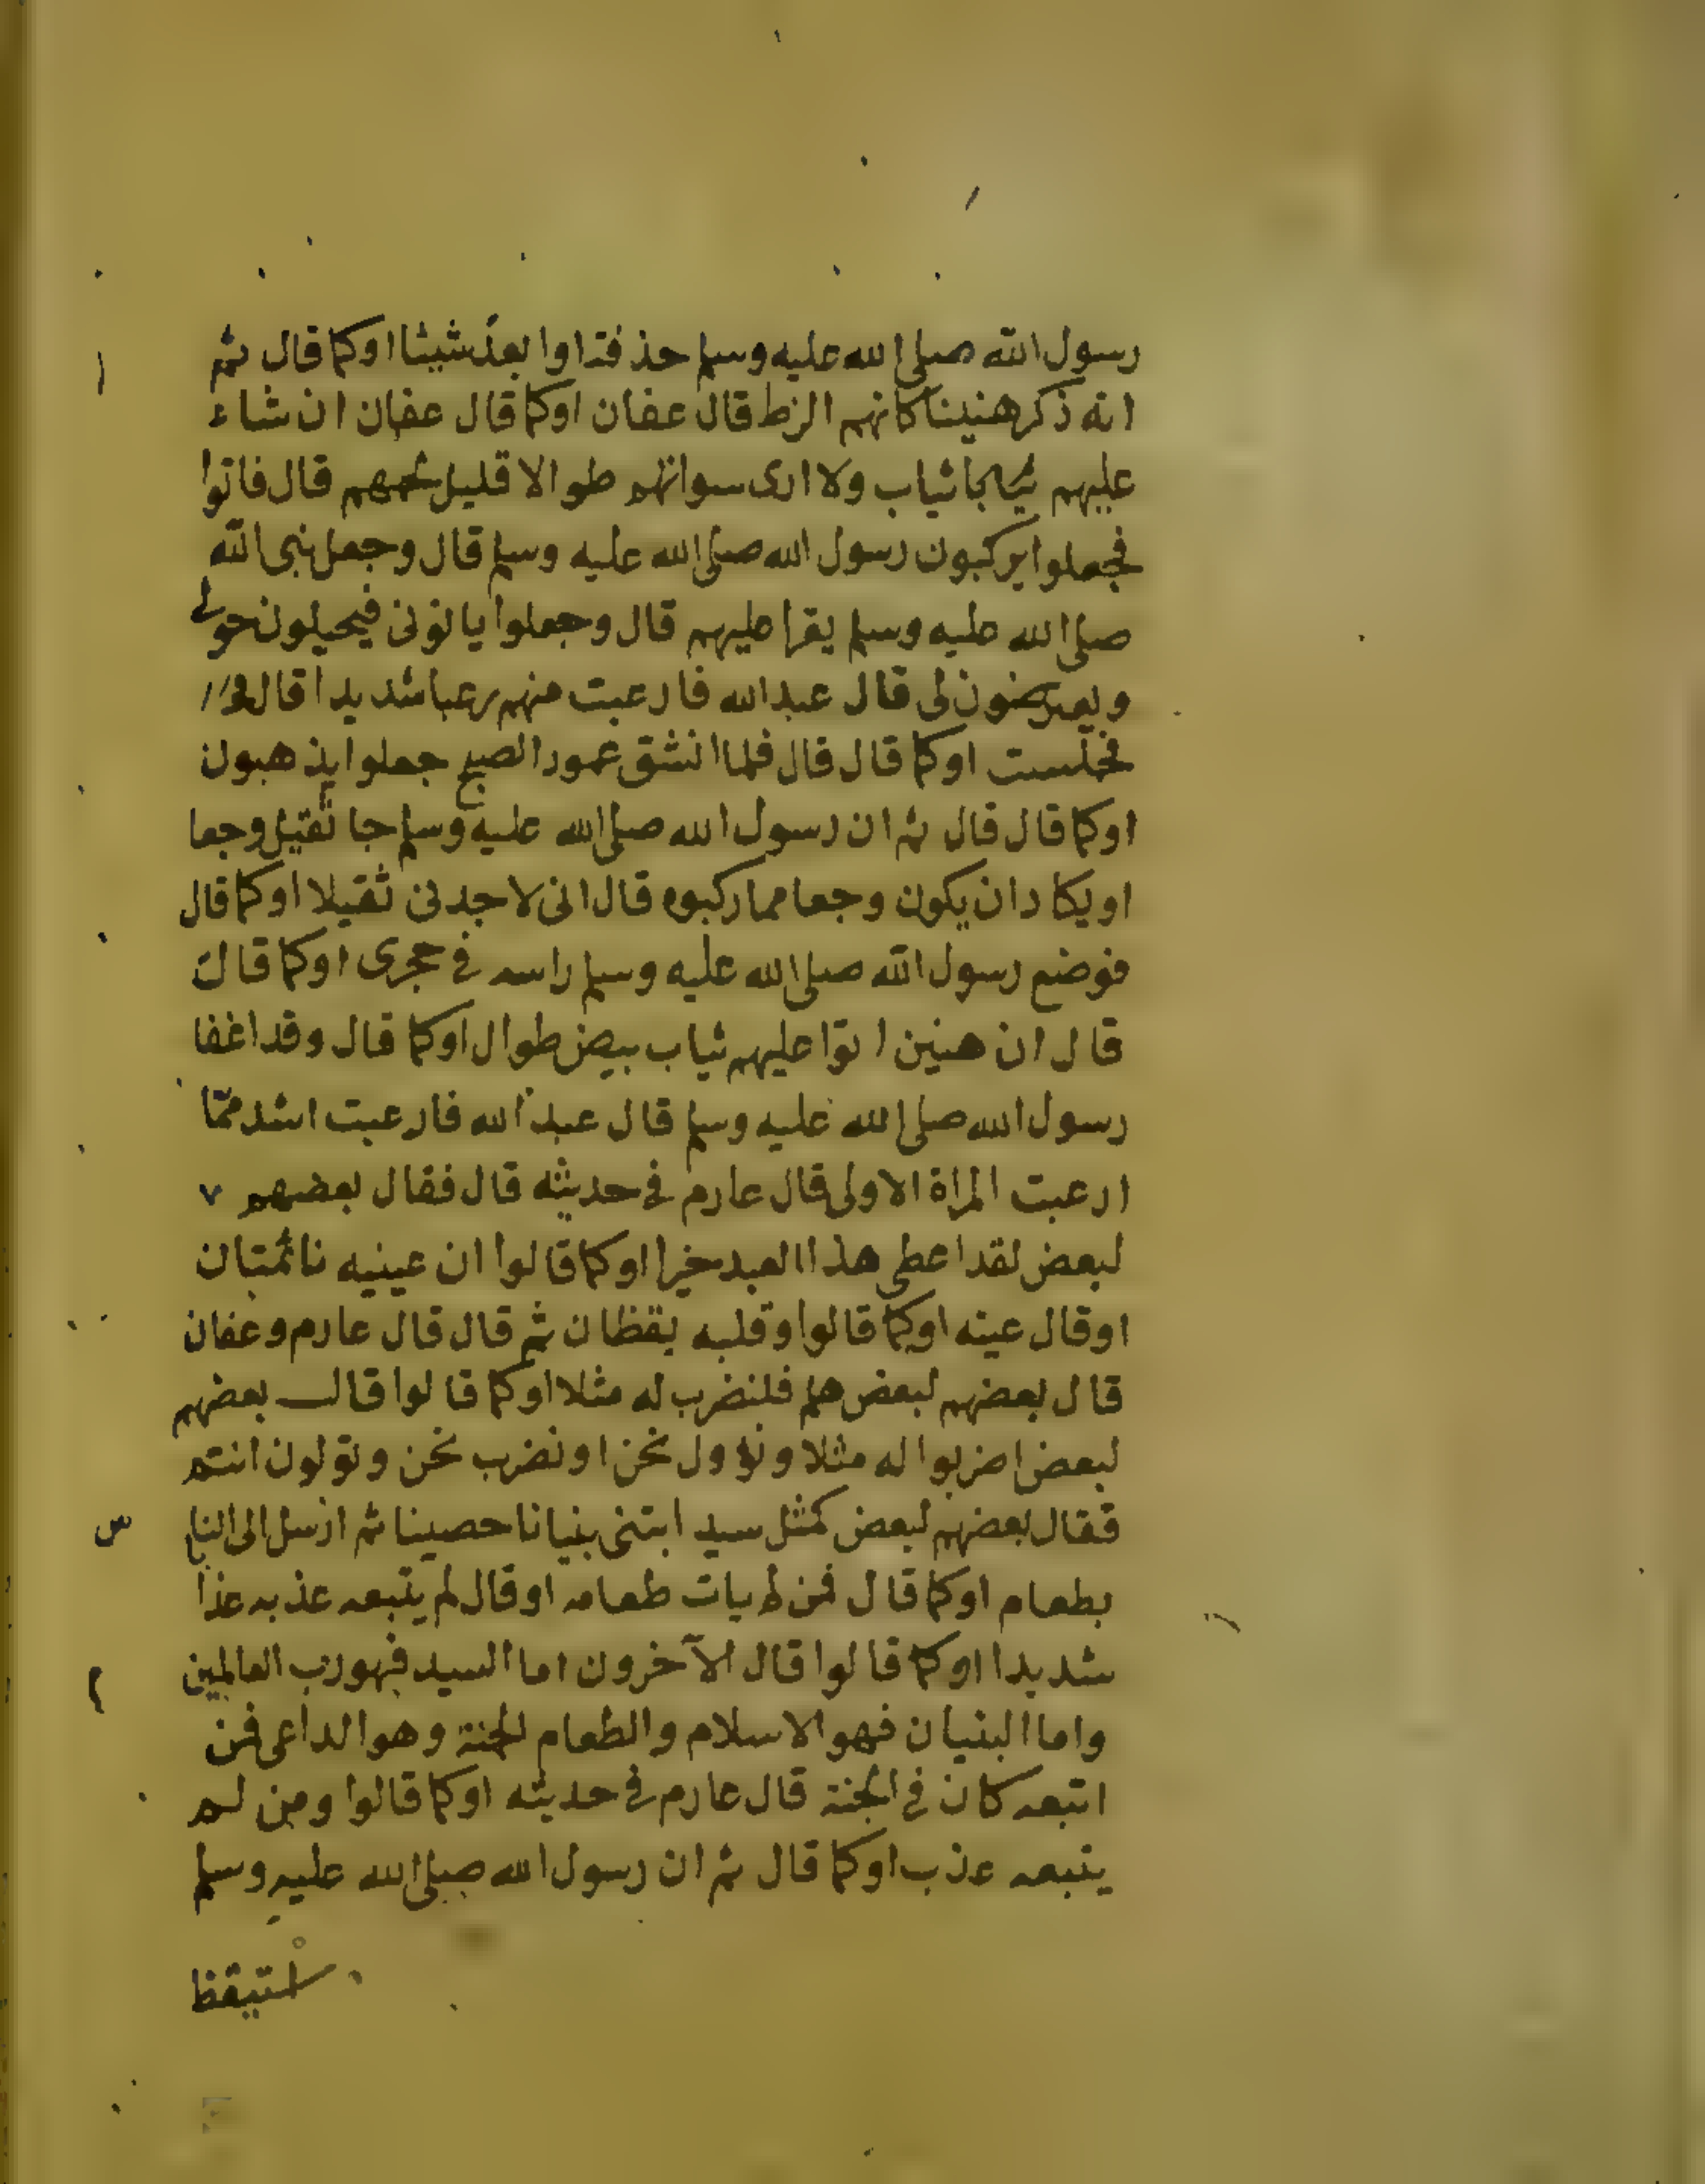 رسول الله صلى الله عليه وسلم حذفة او ابعد شيئا اوكما قال ثم
انه ذكر هنينا كانهم الزط قال عفان اوكما قال عفان ان شاء
عليهم ثياب ولا ارى سواتهم طوالا قليل لحمهم قال فاتوا
فجعلوا يركبون رسول الله صلى الله عليه وسلم قال وجعل نبى الله
صلى الله عليه وسلم يقرا عليهم قال وجعلوا ياتونى فيحيلون حولى
ويعترضون لى قال عبد الله فارعبت منهم رعبا شديدا قال
فجلست اوكما قال قال فلما انشق عمود الصبح جعلوا يذهبون
اوكما قال قال ثم ان رسول الله صلى الله عليه وسلم جا ثقيل وجعا
او يكاد ان يكون وجعا مما ركبوه قال انى لاجدنى ثقيلا اوكما قال
فوضع رسول الله صلى الله عليه وسلم راسه فى حجرى اوكما قال
قال ان هنين اتوا عليهم ثياب بيض طوال اوكما قال وقد اغفا
رسول الله صلى الله عليه وسلم قال عبد الله فارعبت اشد ممّا
ارعبت المراة الاولى قال عارم فى حديثه قال فقال بعضهم
لبعض لقد اعطى هذا العبد خيرا اوكما قالوا ان عينيه نائمتان
او قال عينه اوكما قالوا وقلبه يقظان ثم قال قال عارم وعفان
قال بعضهم لبعض هلم فلنضرب له مثلا اوكما قالوا قال بعضهم
لبعض اضربوا له مثلا ونؤول نحن او نضرب نحن وتولون انتم
فقال بعضهم لبعض كمثل سيد ابتنى بنيانا حصينا ثم ارسل الى الناس
بطعام اوكما قال فمن لم يات طعامه او قال لم يتبعه عذبه عذا
شديدا اوكما قالوا قال الآخرون اما السيد فهو رب العالمين
واما البنيان فهو الاسلام والطعام الجنة وهو الداعى فمن
اتبعه كان فى الجنة قال عارم فى حديثه اوكما قالوا ومن لم
يتبعه عذب اوكما قال ثم ان رسول الله صلى الله عليه وسلم
استيقظ